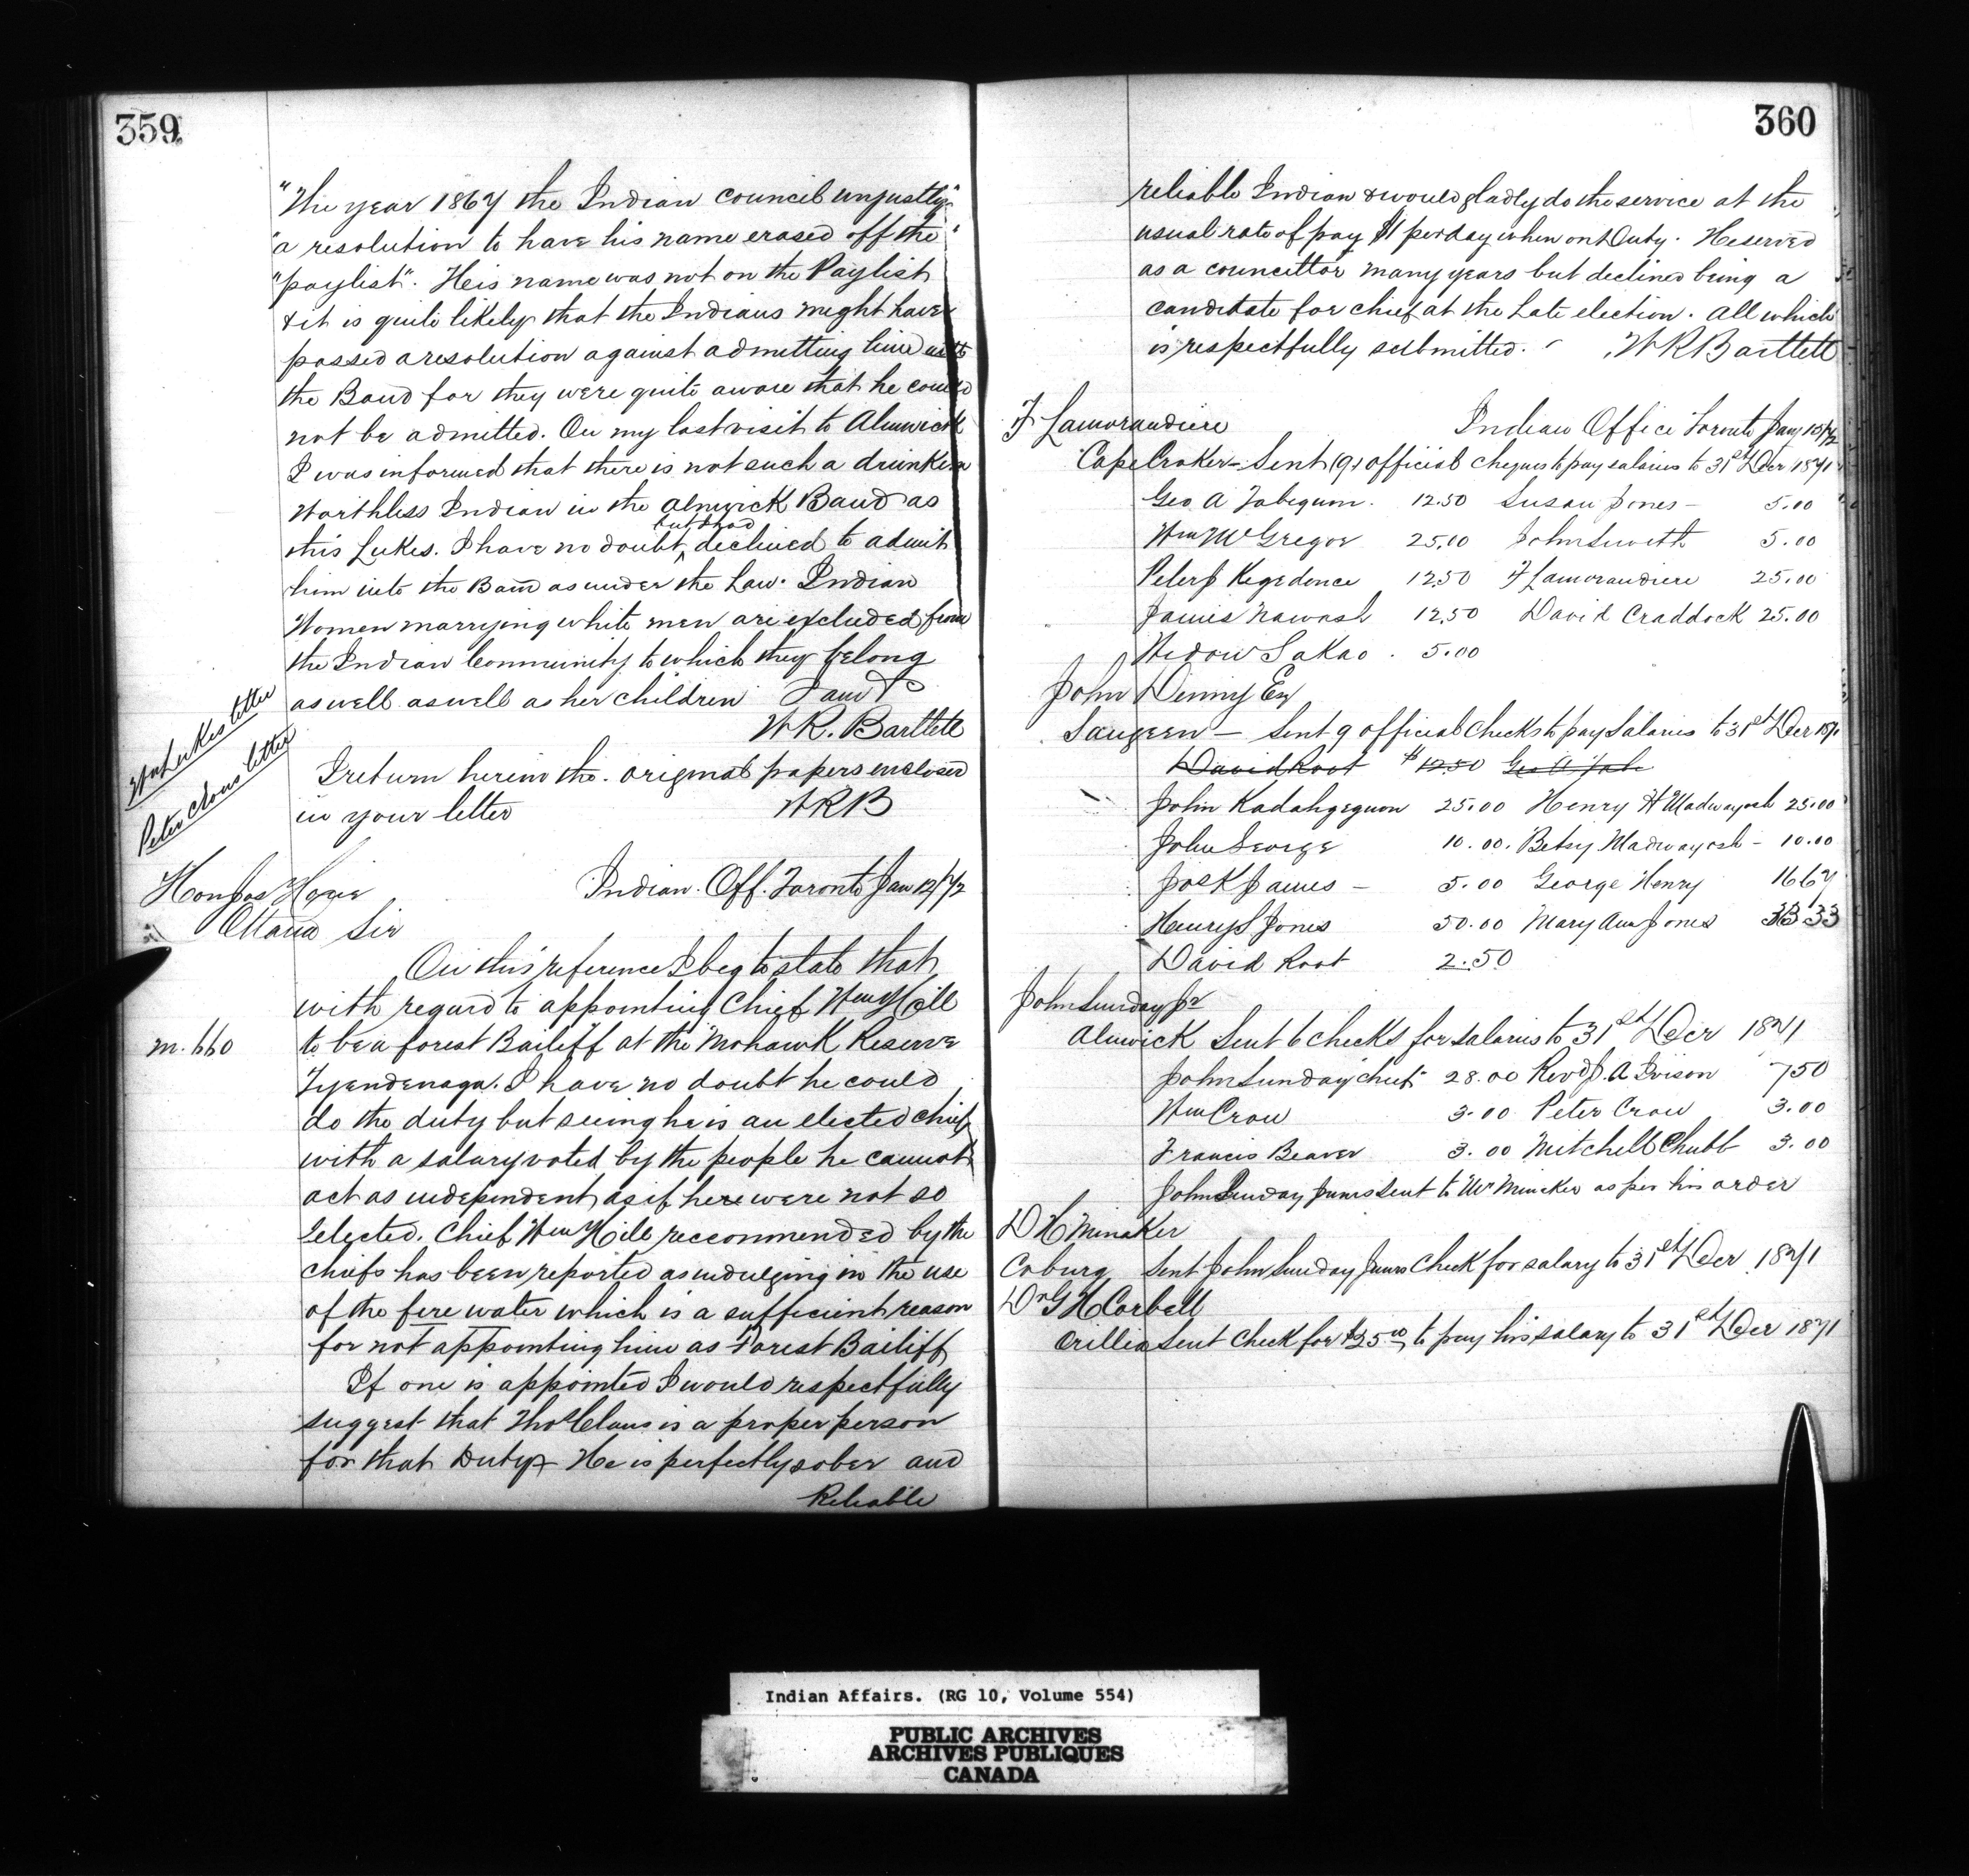 359
"The year 1867 the Indian council unjustly"
"a resolution to have his name erased off the"
"paylist". His name was not on the Paylist
& it is quite likely that the Indians might have
passed a resolution against admitting him into
the Band for they were quite aware that he could
not be admitted. On my last visit to Alnwick
I was informed that there is not such a drunken
Worthless Indian in the Alnwick Band as
this Lukes. I have no doubt, but I had declined to admit
him into the Band as under the Law. Indian
Women marrying white men are excluded from
the Indian Community to which they belong
as well as well as her children I am &c
W R. Bartlett
Wm Lukes letter
Peter Crows letter
I return herein the original papers enclosed
in your letter WRB
Hon Jos Howe Indian Off. Toronto Jan 12/72
Ottawa Sir
On this reference I beg to state that
with regard to appointing Chief Wm Hill
m. 660 to be a forest Bailiff at the Mohawk Reserve
Tyendenaga. I have no doubt he could
do the duty but seeing he is an elected chief
with a salary voted by the people he cannot
act as independent as if here were not so
elected. Chief Wm Hill reccommended by the
chiefs has been reported as indulging in the use
of the fire water which is a sufficient reason
for not appointing him as Forest Bailiff
If one is appointed I would respectfully
suggest that Thos Claus is a proper person
for that Duty - He is perfectly sober and
Reliable
360
reliable Indian & would gladly do the service at the
usual rate of pay $1 per day when on Duty. He served
as a councillor many years but declined being a
candidate for chief at the Late election. All which
is respectfully submitted. W R Bartlett
F Lamorandiere Indian Office Toronto Jany 15/72
Cape Croker - Sent (9) official cheques to pay salaries to 31st Decr 1871
Geo A Tabegum. 12.50 Susan Jones - 5.00
Wm McGregor 25.00 John Smith 5.00
Peter J Kegedonce 12.50 F Lamorandiere 25.00
James Nawash 12.50 David Craddock 25.00
Widow Sakao. 5.00
John Dinny Esq
Saugeen - Sent 9 official Checks to pay Salaries to 31st Decr 1871
David Root $12.50 Geo A Tabe
John Kadahgeguon 25.00 Henry H Madwayosh 25.00
John George 10.00. Betsy Madwayosh - 10.00
Jos K James - 5.00 George Henry 16.67
Henry S Jones 50.00 Mary Ann Jones 33 33
David Root 2.50
John Sunday Jr
Alnwick Sent 6 checks for salaries to 31st Decr 1871
John Sunday chief 28.00 Revd J. A Ivison 7.50
Wm Crow 3.00 Peter Crow 3.00
Francis Beaver 3.00 Mitchell Chubb 3.00
John Sunday Junrs sent to Mr Minaker as per his order
D H Minaker
Coburg Sent John Sunday Junrs Check for salary to 31st Decr 1871
Dr G H Corbett
Orillia Sent Check for $25.00 to pay his salary to 31st Decr 1871
Indian Affairs. (RG 10, Volume 554)
PUBLIC ARCHIVES
ARCHIVES PUBLIQUES
CANADA